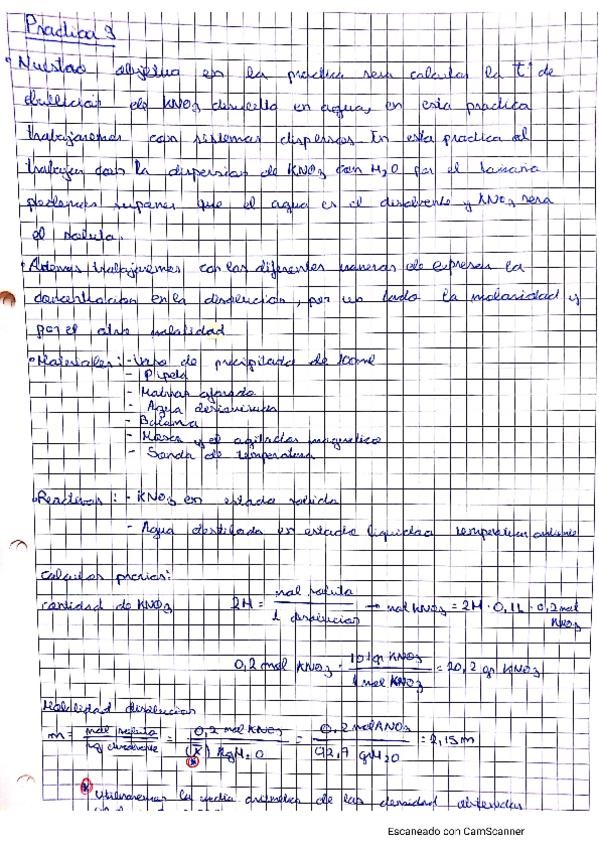 Practica 3
• Nuestro objetivo en la practica sera calcular la Tº de
ebullición de KNO3 disuelto en agua, en esta practica
trabajaremos con sistemas dispersos. En esta practica al
trabajar con la dispersion de KNO3 con H2O por el tamaño
podemos suponer que el agua es el disolvente y KNO3 sera
el soluto.
• Ademas trabajaremos con las diferentes maneras de expresar la
concentracion en la disolución, por un lado la molaridad y
por el otro molalidad
• Materiales: - Vaso de precipitado de 100ml
- Pipeta
- Matraz aforado
- Agua desionizada
- Balanza
- y el agitador magnetico
- Sonda de temperatura
• Reactivos: - KNO3 en estado solido
- Agua destilada en estado liquido a temperatura ambiente
Calculos previos:
cantidad de KNO3 2M = mol soluto / L disolucion → mol KNO3 = 2M · 0,1L · 0,2 mol KNO3
0,2 mol KNO3 · 101gr KNO3 / 1 mol KNO3 = 20,2 gr KNO3
Molalidad disolucion
m = mol soluto / kg disolvente = 0,2 mol KNO3 / (x) kg H2O = 0,2 mol KNO3 / 92,7 gr H2O = 2,15m
(x) Utilizaremos la media aritmetica de las densidad obtenidas
Escaneado con CamScanner